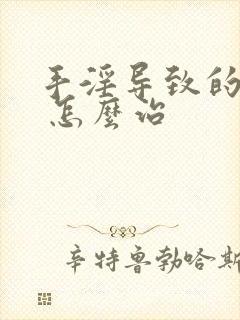 手淫导致的
怎麽治
辛特鲁勃哈斯